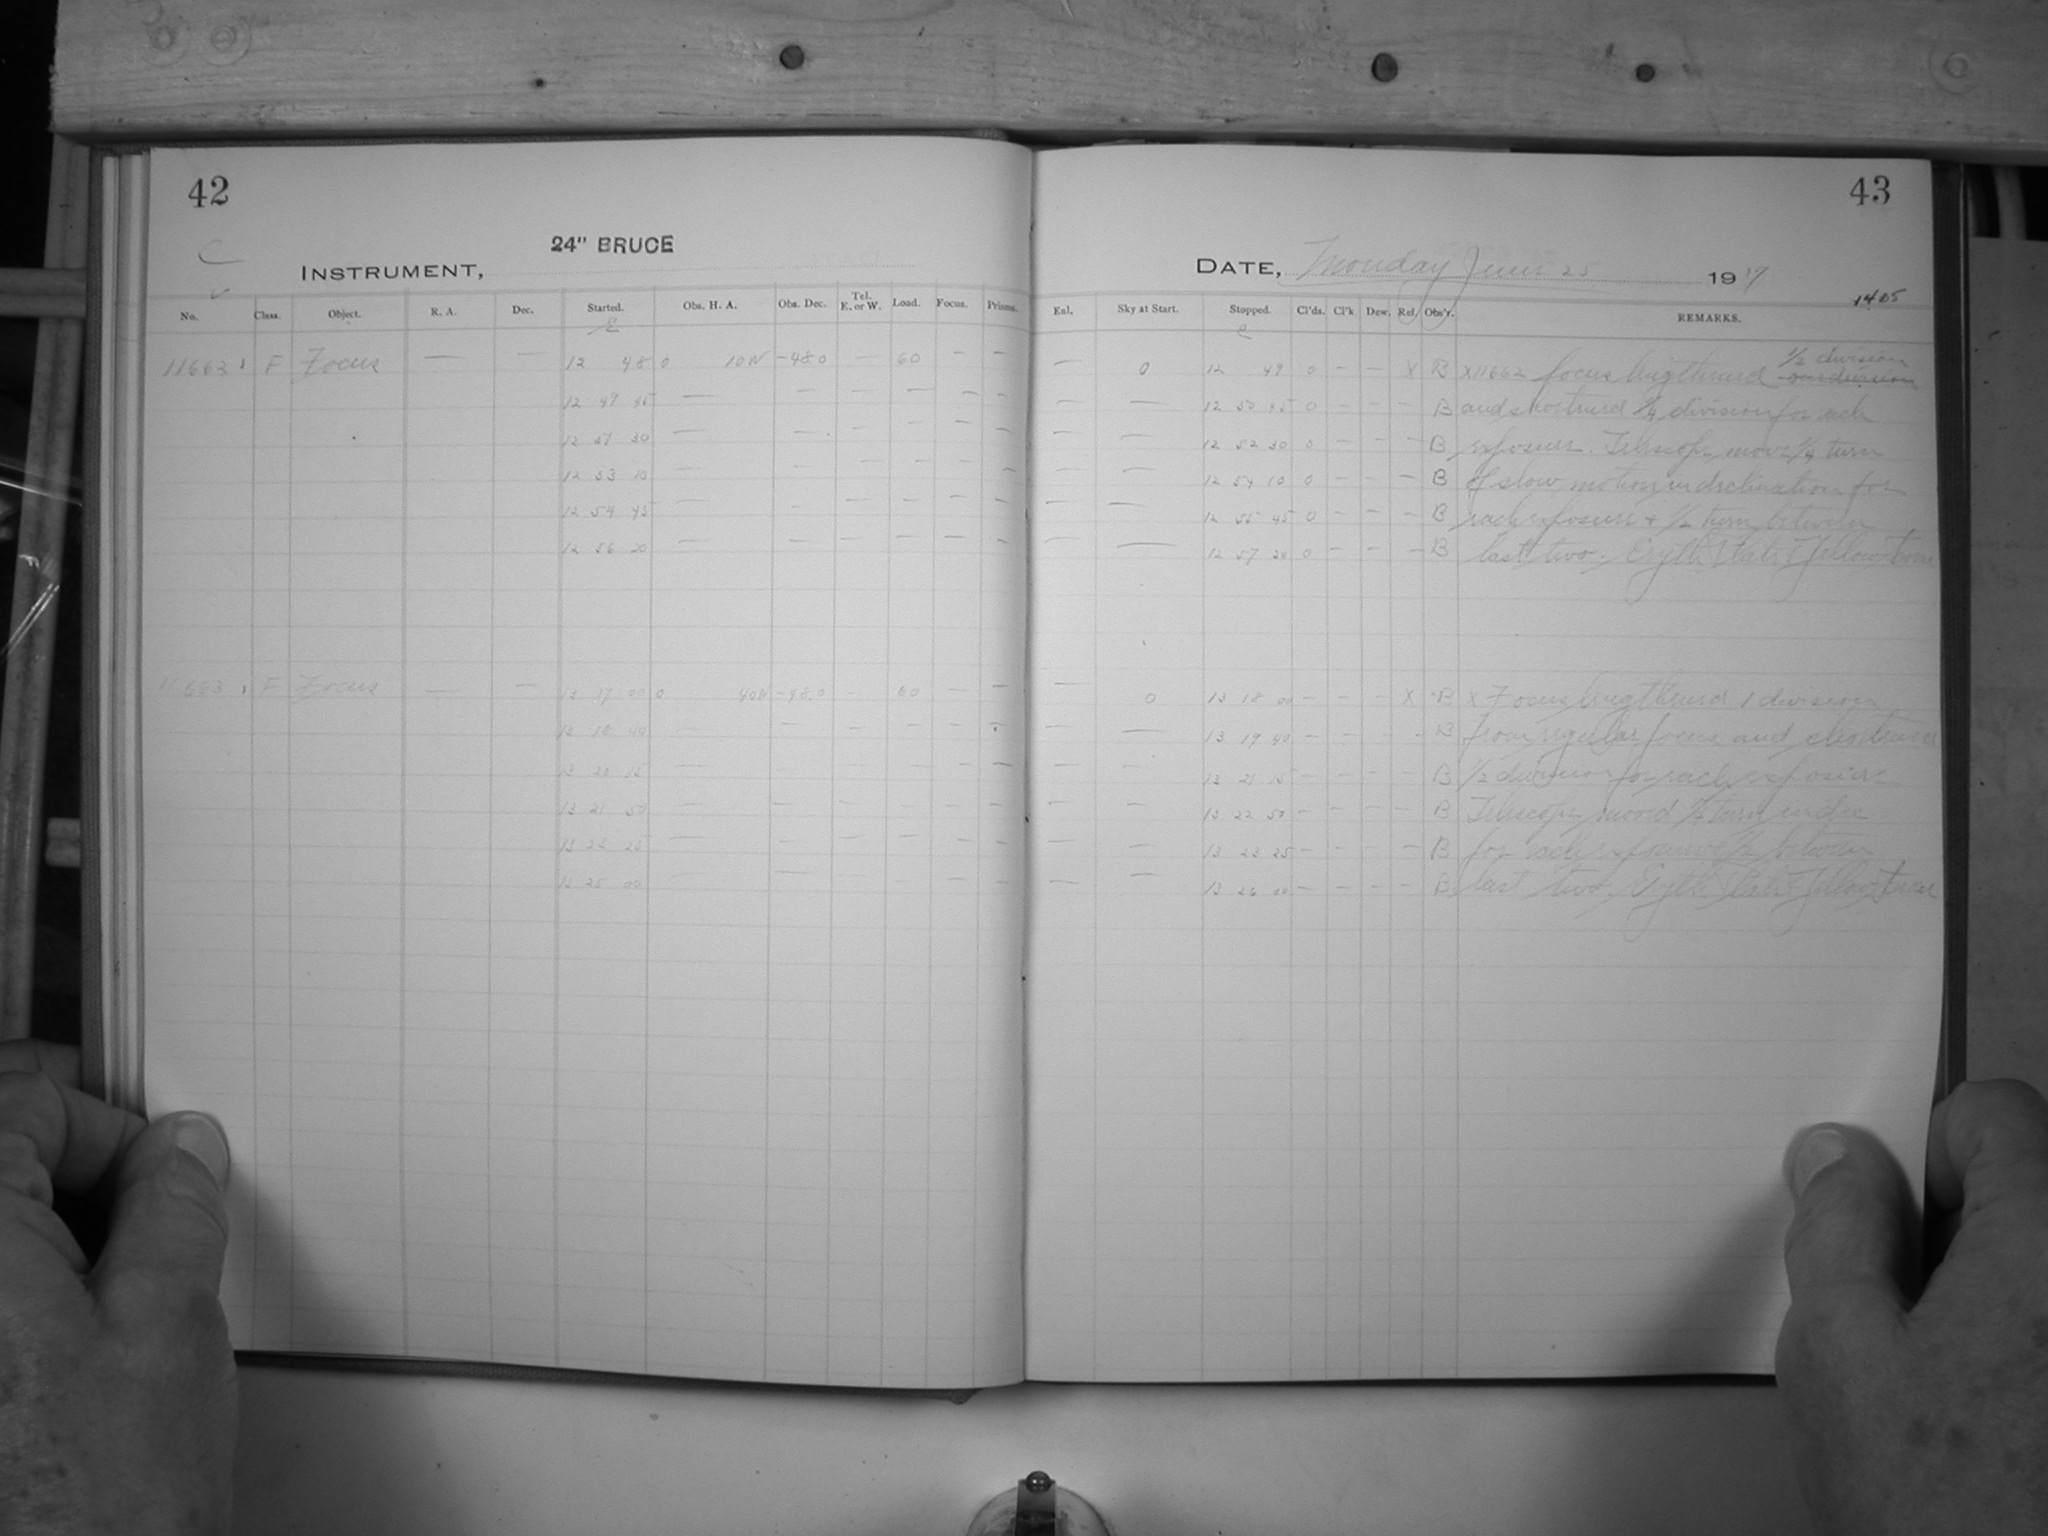 42
24" BRUCE
INSTRUMENT,
No. Class. Object. R. A. Dec. Started. Obs. H. A. Obs. Dec. Tel. E. or W. Load. Focus. Prisms.
F Focus — — 12 48 0 10 W -48.0 — 60 — —
12 49 45 — — — — — — —
12 51 30 — — — — — — —
12 53 10 — — — — — — —
12 54 45 — — — — — — —
12 56 20 — — — — — — —
11663 F Focus — — 13 17 00 0 40W -48.0 — 60 — —
13 18 40 — — — — — —
13 20 15 — — — — — — —
13 21 50 — — — — — — —
13 23 25 — — — — — — —
13 25 00 — — — — — —
43
DATE, Monday June 25 1917
1405
Enl. Sky at Start. Stopped. Cl'ds. Cl'k Dew. Ref. Obs'r. REMARKS.
½ division
— 0 12 49 0 — — X B X11662 focus lengthened one division
— — 12 50 45 0 — — — B and shortened ¼ division for each
— — 12 52 30 0 — — — B exposure. Telescope move ¼ turn
— — 12 54 10 0 — — — B of slow motion in declination for
— — 12 55 45 0 — — — B each exposure + ½ turn between
— — 12 57 20 0 — — — B last two.
— 0 13 18 00 — — — X B x Focus lengthened 1 division
— — 13 19 40 — — — — B from regular focus and shortened
— — 13 21 15 — — — — B ½ division for each exposure
— — 13 22 50 — — — — B Telescope moved turn in dec
— — 13 23 25 — — — — B for each exposure ½ between
— — 13 26 00 — — — — B last two.